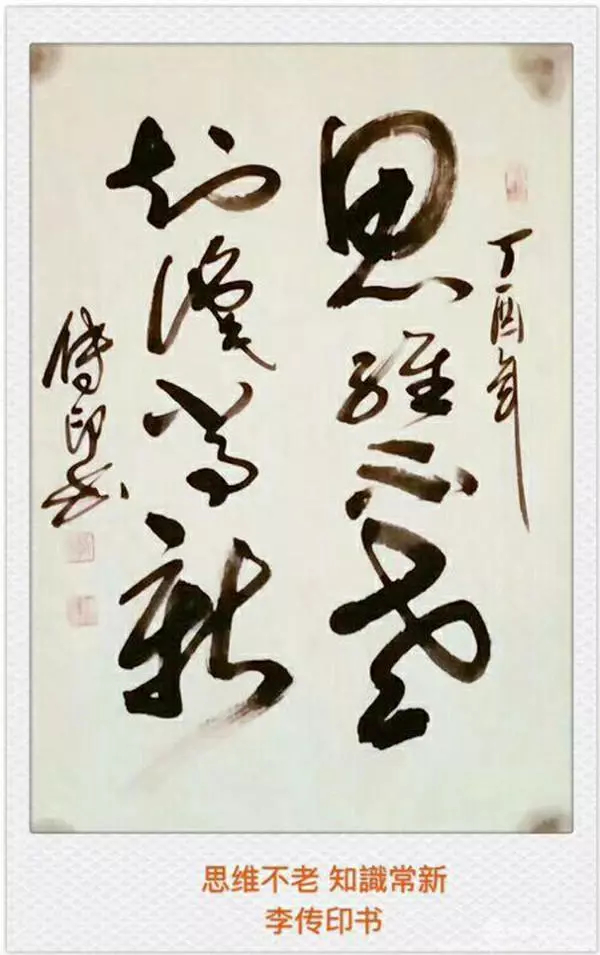 丁酉年
思维不老
知識常新
傳印书
思维不老 知識常新
李传印书